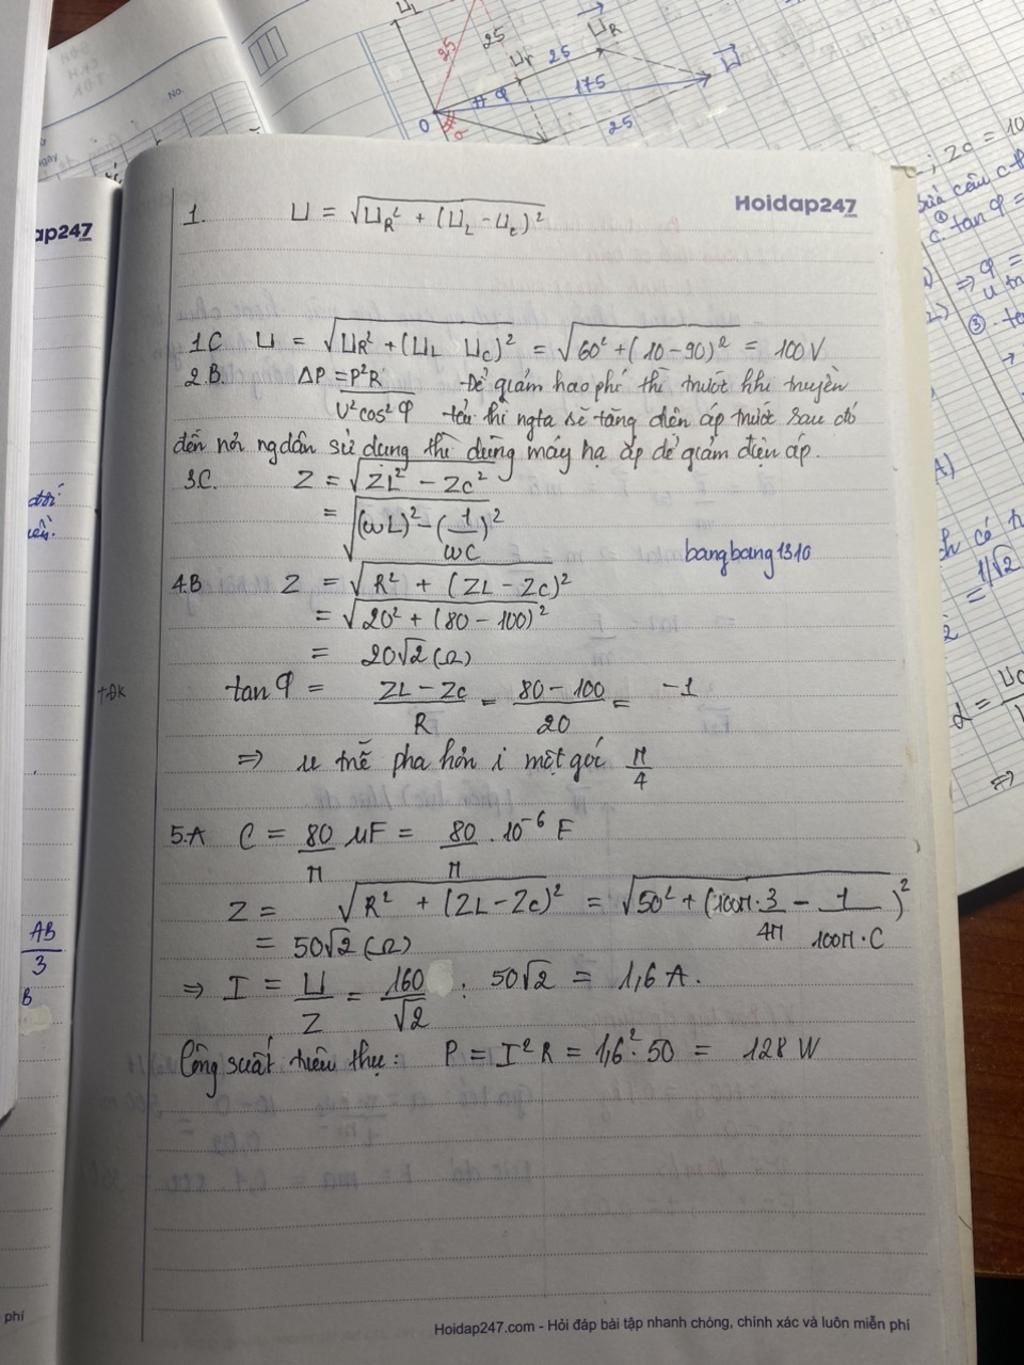 U_L
25
25
U_r
25
U_R
U
φ
175
O
25
No.
; Zc = 10
c. tan φ =
⇒ φ =
③
ap247
.com
Hoidap247
.com
1. U = √(U_R² + (U_L - U_c)²)
1.C U = √(U_R² + (U_L U_C)²) = √(60² + (10 - 90)²) = 100V
2.B. ΔP = P²R / U²cos²φ - Để giảm hao phí thì trước khi truyền
tải thì ngta sẽ tăng điện áp trước sau đó
đến nơi ng dân sử dụng thì dùng máy hạ áp để giảm điện áp.
3.C. Z = √(ZL² - Zc²)
= √((ωL)² - (1/ωC)²)
bangbang1310
4.B Z = √(R² + (ZL - Zc)²)
= √(20² + (80 - 100)²)
= 20√2 (Ω)
tan φ = (ZL - Zc)/R = (80 - 100)/20 = -1
⇒ u trễ pha hơn i một góc π/4
5.A C = 80/π μF = 80/π . 10⁻⁶ F
Z = √(R² + (ZL - Zc)²) = √(50² + (100π . 3/4π - 1/(100π . C))²)
= 50√2 (Ω)
⇒ I = U/Z = 160/√2 : 50√2 = 1,6 A.
Công suất tiêu thụ: P = I²R = 1,6² . 50 = 128 W
+ĐK
AB/3
B
phí
Hoidap247.com - Hỏi đáp bài tập nhanh chóng, chính xác và luôn miễn phí